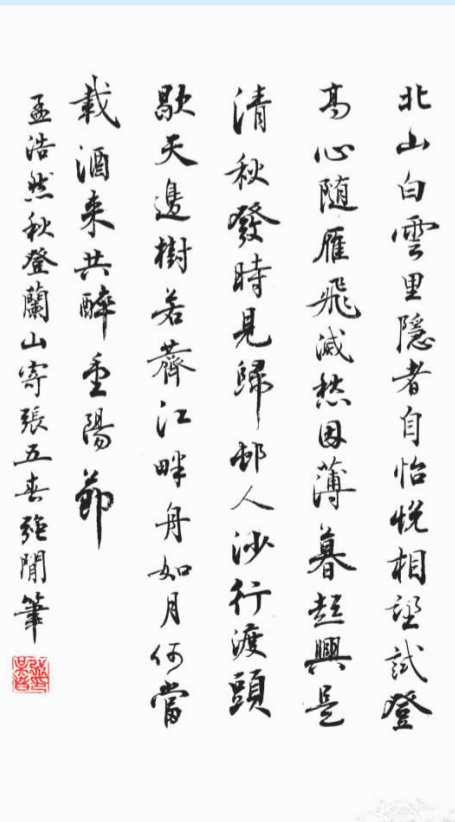 北山白雲里隱者自怡悅相望試登
高心随雁飛滅愁因薄暮起興是
清秋發時見歸邨人沙行渡頭
歇天邊樹若薺江畔舟如月何當
載酒来共醉重陽節
孟浩然秋登蘭山寄張五春強閒筆